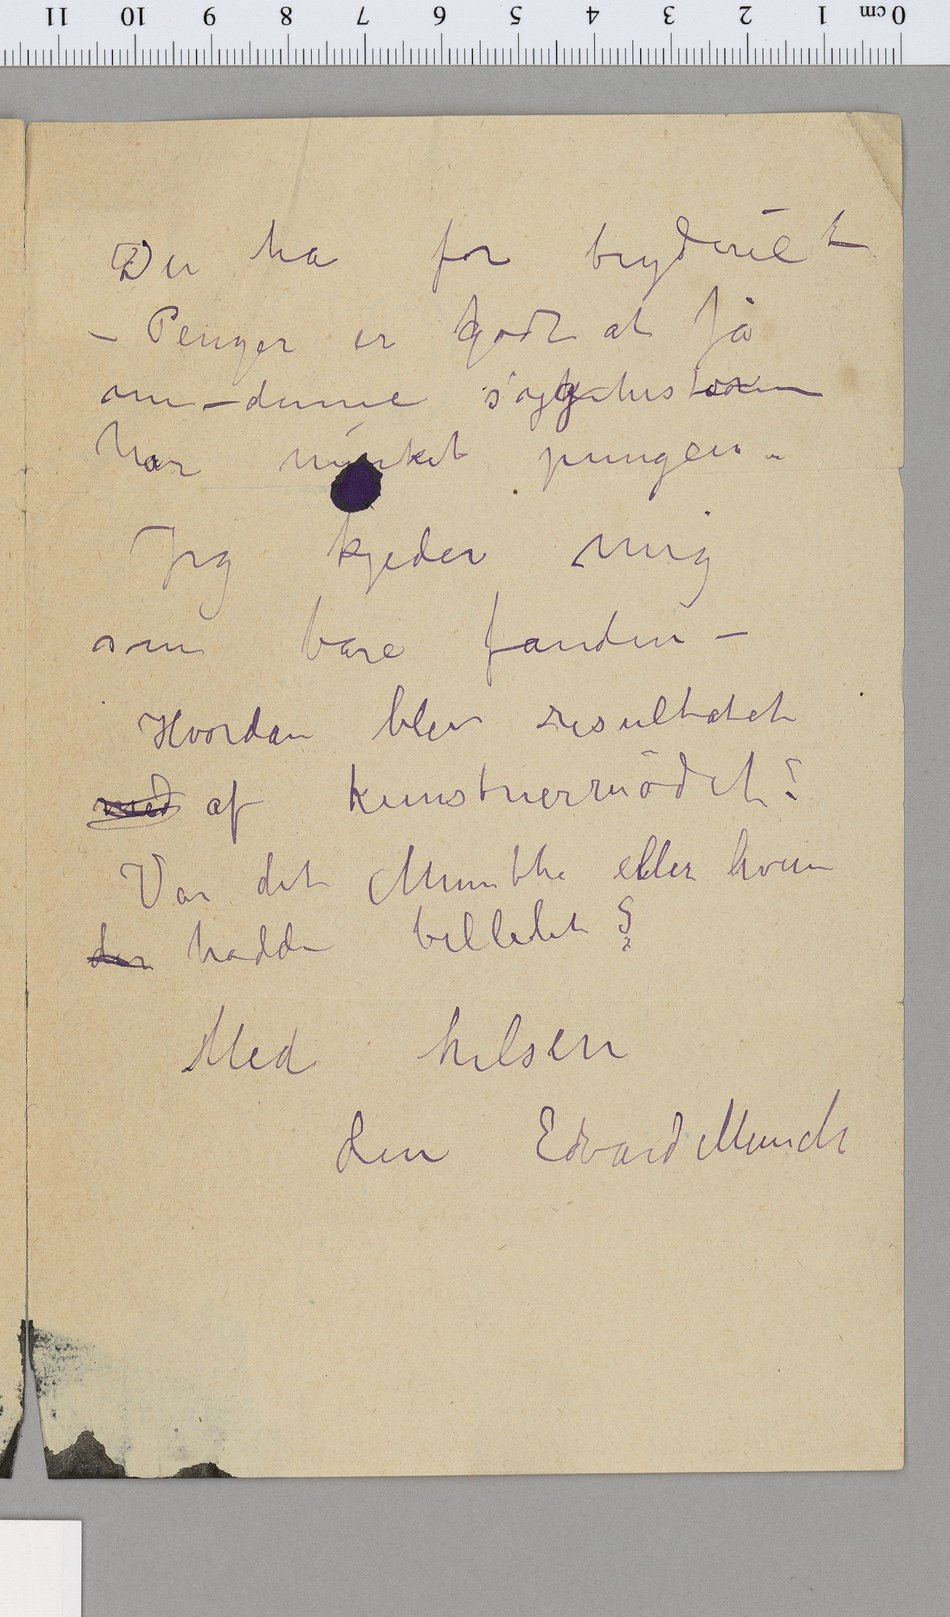 0 cm 1 2 3 4 5 6 7 8 9 10 11
Du ha for bryderiet
– Penger er godt at få
om – denne
har pungen –
Jeg kjeder mig
som bare fanden –
Hvordan blev resultatet
med af kunstnermödet?
Var det Munthe eller hvem
der hadde billedet?
Med hilsen
din Edvard Munch